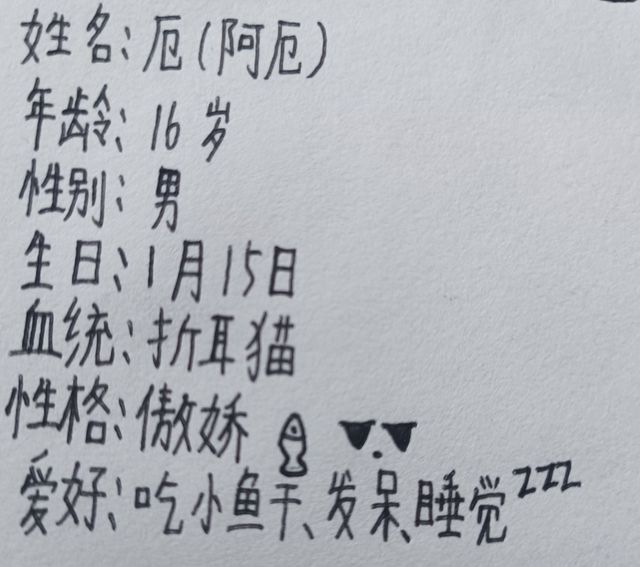 姓名:厄(阿厄)
年龄:16岁
性别:男
生日:1月15日
血统:折耳猫
性格:傲娇
爱好:吃小鱼干、发呆、睡觉zzz